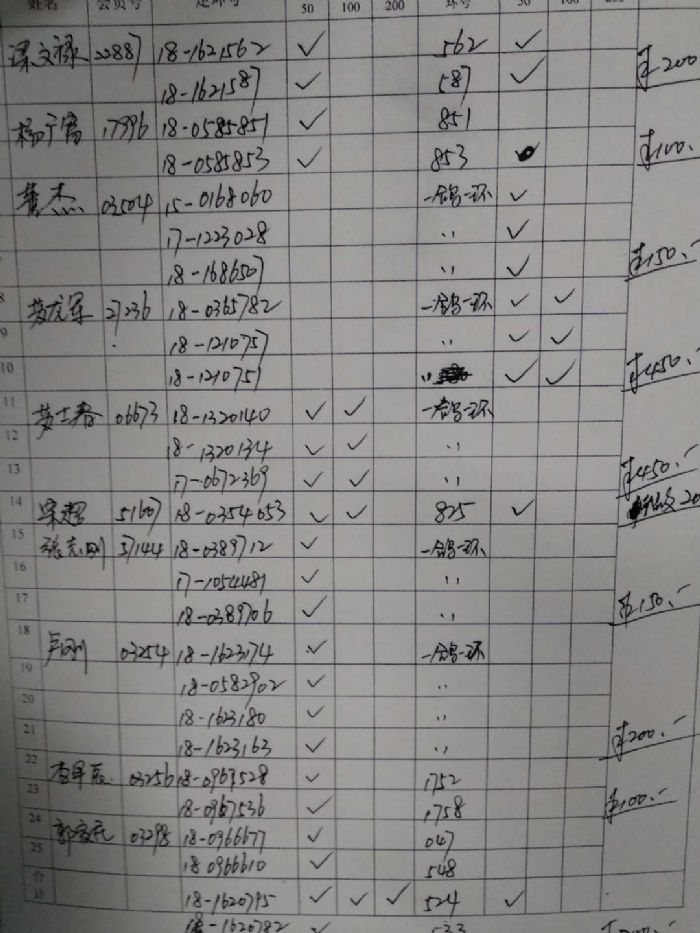 姓名 会员号 足环号 50 100 200 环号 50 100 200
22887 18-1621562 ✓ 562 ✓
18-1621587 ✓ 587 ✓ ¥200
17996 18-0585851 ✓ 851
18-0585853 ✓ 853 ¥100.-
杰 03504 15-0168060 一鸽一环 ✓
17-1223028 〃 ✓
18-1686507 〃 ✓ ¥150.-
8 21236 18-0365782 一鸽一环 ✓ ✓
9 18-1210757 〃 ✓ ✓
10 18-1210751 〃 ✓ ✓ ¥450.-
11 06673 18-1320140 ✓ ✓ 一鸽一环
12 18-1320134 ✓ ✓ 〃
13 17-0672369 ✓ ✓ 〃 ¥450.-
14 51607 18-0354053 ✓ ✓ 825 ✓
15 张志刚 57144 18-0389712 ✓ 一鸽一环
16 17-1054481 ✓ 〃
17 18-0389706 ✓ 〃 ¥150.-
18 卢刚 03254 18-1623174 ✓ 一鸽一环
19 18-0582902 ✓ 〃
20 18-1623180 ✓ 〃
21 18-1623163 ✓ 〃 ¥200.-
22 03256 18-0967528 ✓ 1752
23 18-0967536 ✓ 1758 ¥100.-
24 03298 18-0966677 ✓ 047
25 18 0966610 ✓ 548
合计 18-1620795 ✓ ✓ ✓ 524 ✓
18-1620782 ✓ 533